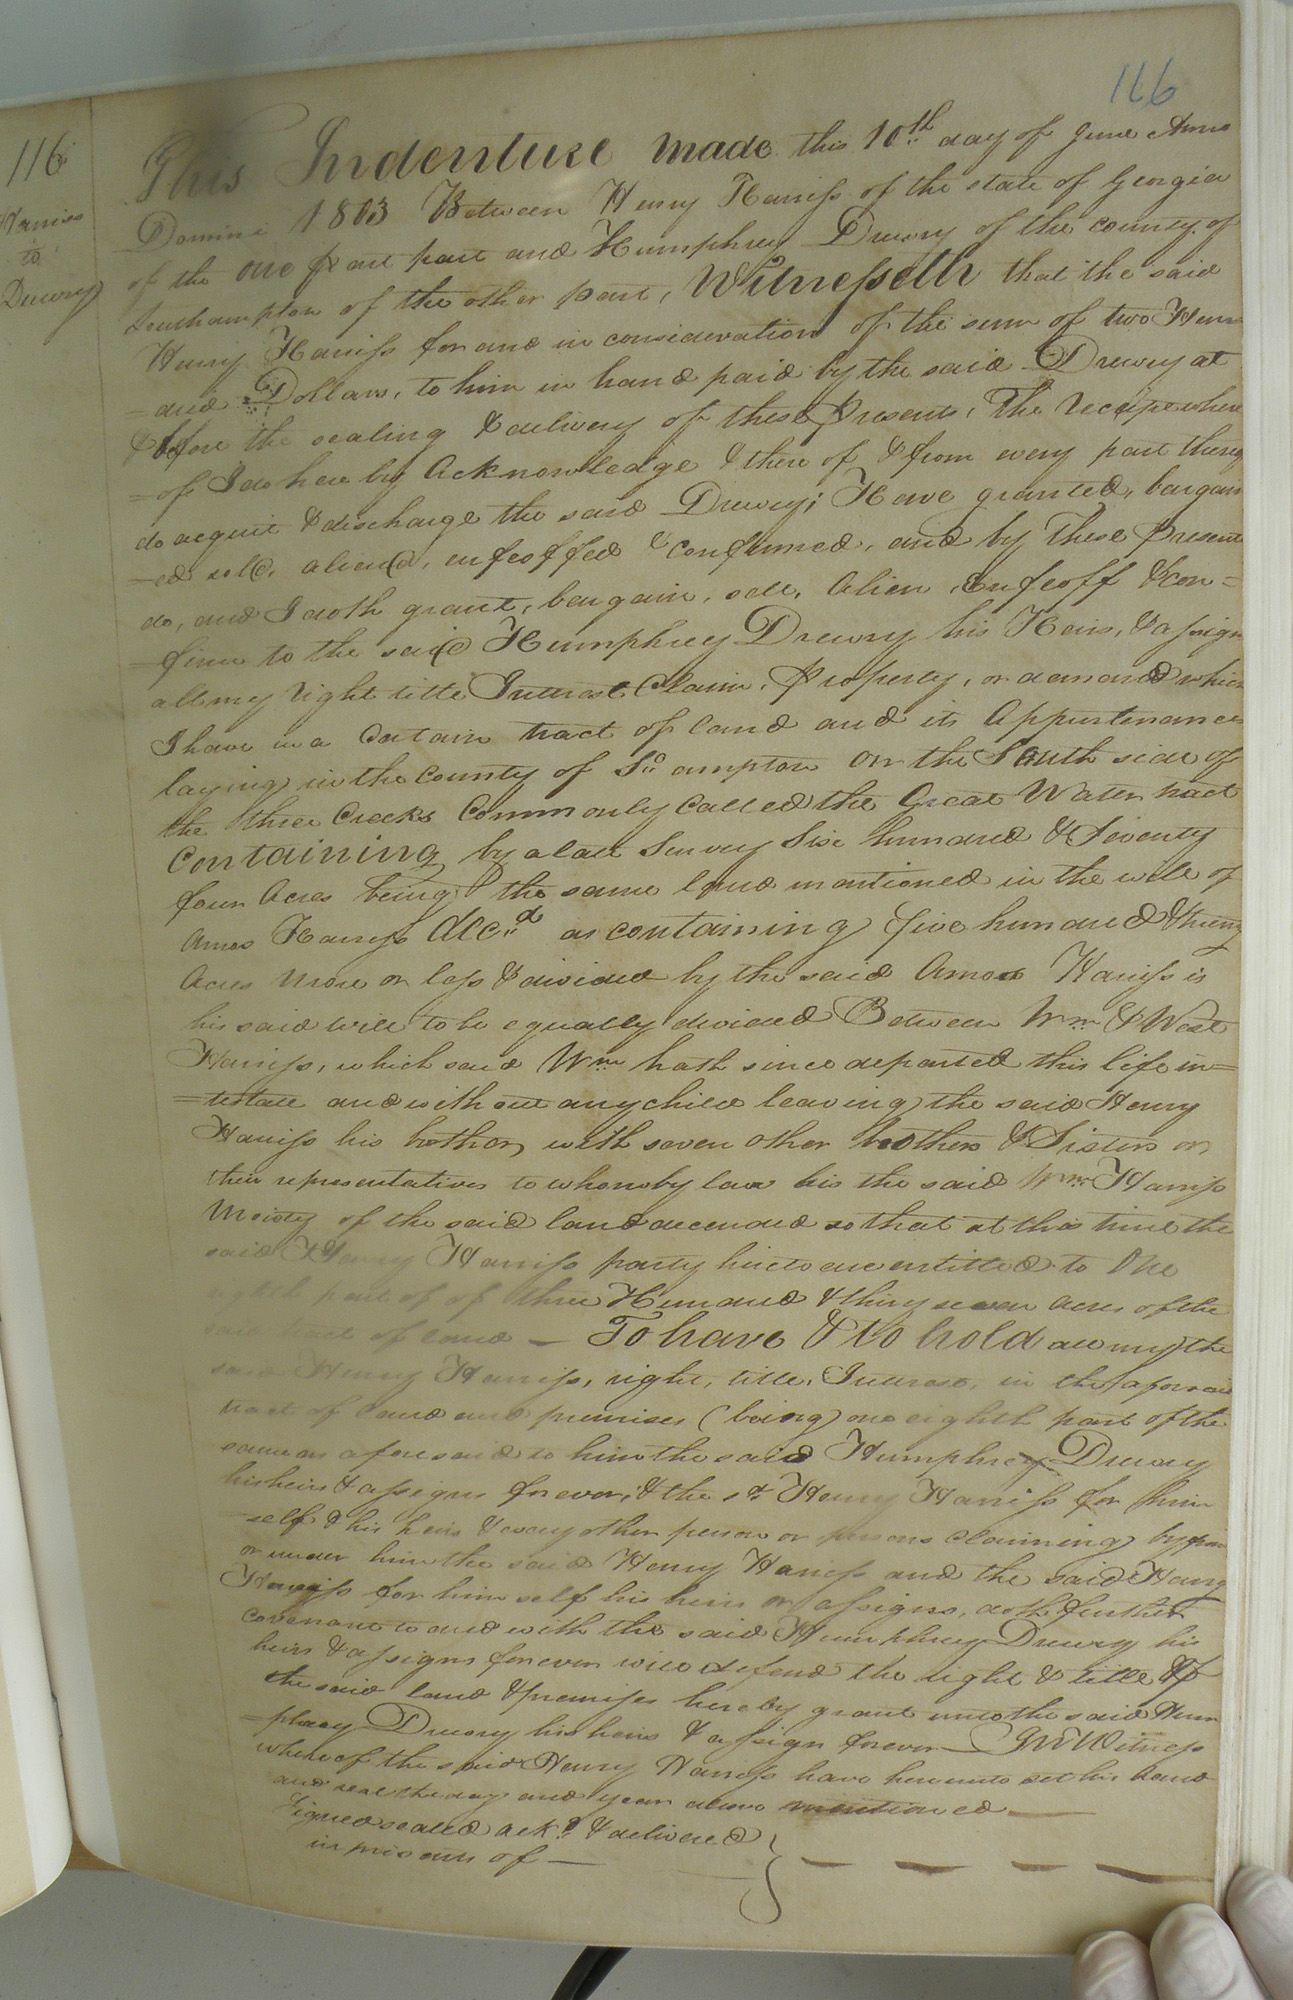 116
116
Harriss
to
Drewry
This Indenture made this 10th day of June Anno
Domini 1803 Between Henry Harriss of the state of Georgia
of the one part part and Humphrey Drewry of the county of
Southampton of the other part, Witnesseth that the said
Henry Harriss for and in consideration of the sum of two Hun
-dred Dollars, to him in hand paid by the said Drewry at
& before the sealing & delivery of these Presents, The Receipe where
-of I do here by Acknowledge & there of & from every part thereof
do acquit & discharge the said Drewry; Have granted, bargain
-ed sold, aliend, enfeoffed & confirmed, and by These Present
do, and I doth grant, bargain, sell, Alien, Enfeoff & con=
-firm to the said Humphrey Drewry his Heirs, & assign
all my right title Interest Claim, Property, or demand which
I have in a Certain tract of land and its Appurtenances
laying in the County of So. ampton on the South side of
the three Creeks Commonly Called the Great Water tract
Containing by a late Survey Six hundred & Seventy
four Acres being the same land mentioned in the will of
Amos Harriss dec.d as containing five hundred & thirty
Acres more or less & divided by the said Amos Harriss is
his said will to be equally devided Between Wm & West
Harriss, which said Wm hath since departed this life in=
=testate and without any child leaving the said Henry
Harriss his brother, with seven other brothers & Sisters or
their representatives to whom by law his the said Wm Harriss
Moiety of the said land decended so that at this time the
said Henry Harriss party hireto are entitled to One
eighth part of of three Hundred & thirty seven acres of the
said tract of land — To have & to hold all my the
said Henry Harriss, right, title, Interest, in the aforesaid
tract of land and premises (being) one eighth part of the
same as aforesaid to him the said Humphrey Drewry
his heirs & assigns forever; & the sd Henry Harriss for him
-self & his heirs & every other person or persons claiming by from
or under him the said Henry Harriss and the said Henry
Harriss for himself his heirs or assigns, doth further
covenant to and with the said Humphrey Drewry his
heirs & assigns forever will defend the right & title of
the said land & premises hereby grant unto the said Hum
=phrey Drewry his heirs & assign forever — In Witness
whereof the said Henry Harriss have hereunto set his hand
and seal the day and year above mentioned —
Signed sealed ackd & delivered
in presents of —